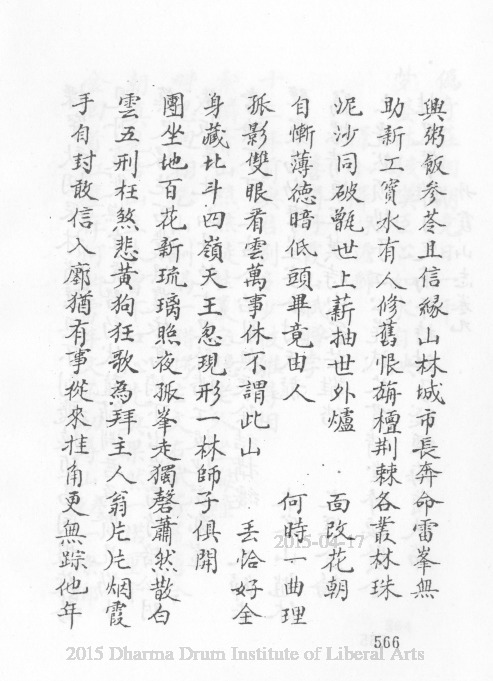 與粥飯參苓且信緣山林城市長奔命雷峯無
助新工寶水有人修舊恨旃檀荆棘各叢林珠
泥沙同破甑世上薪抽世外爐 面改花朝
自慚薄德暗低頭畢竟由人 何時一曲理
孤影雙眼看雲萬事休不謂此山 丟恰好全
身藏北斗四嶺天王忽現形一林師子俱開
團坐地百花新琉璃照夜孤峯走獨磬蕭然散白
雲五刑枉煞悲黃狗狂歌為拜主人翁片片烟霞
手自封敢信入廓猶有事從來挂角更無踪他年
566
2015-04-17
2015 Dharma Drum Institute of Liberal Arts